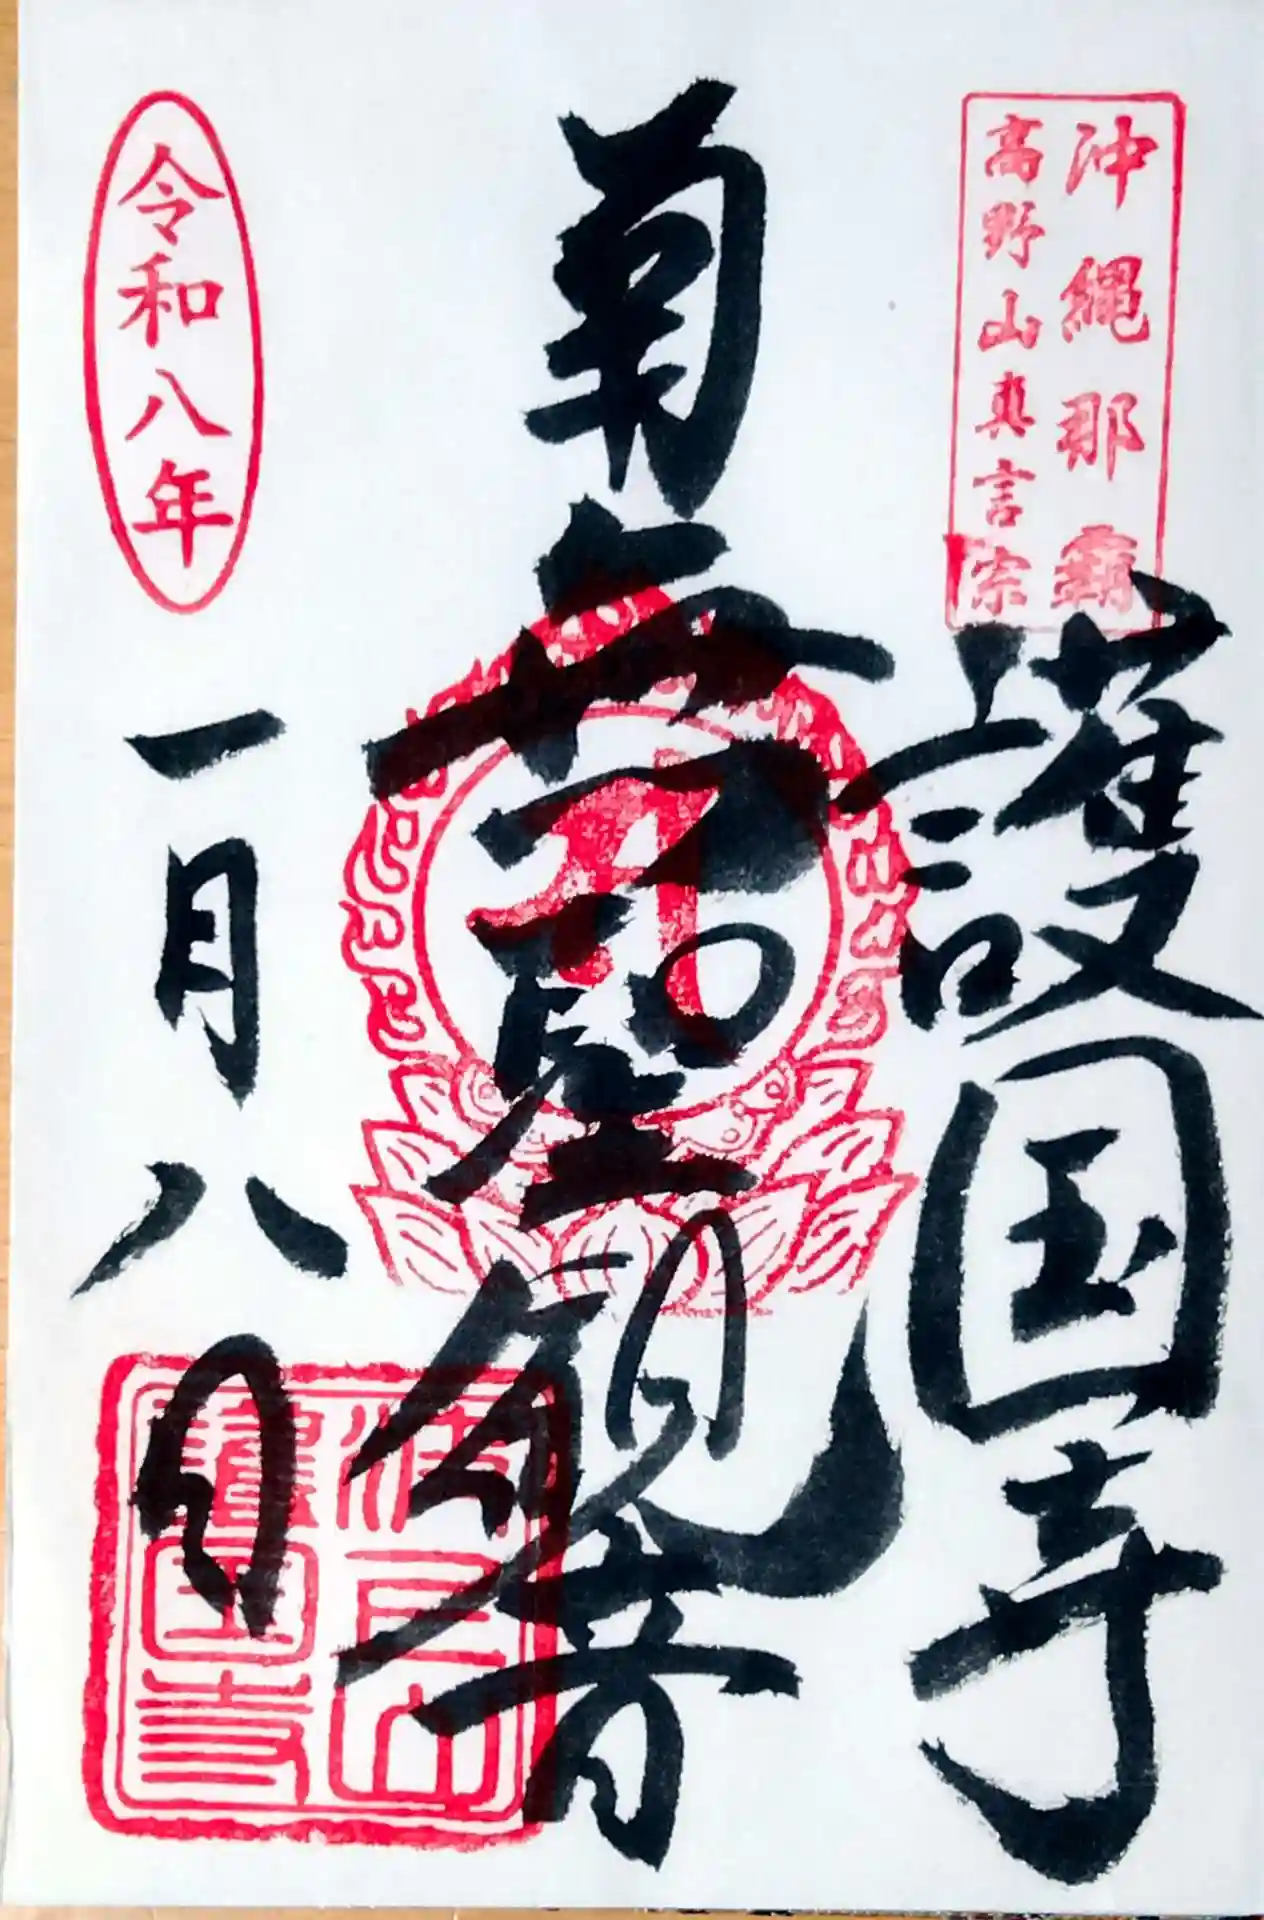 沖縄那覇
高野山真言宗
護国寺
南無聖観音
令和八年
一月八日
波上山
護国寺